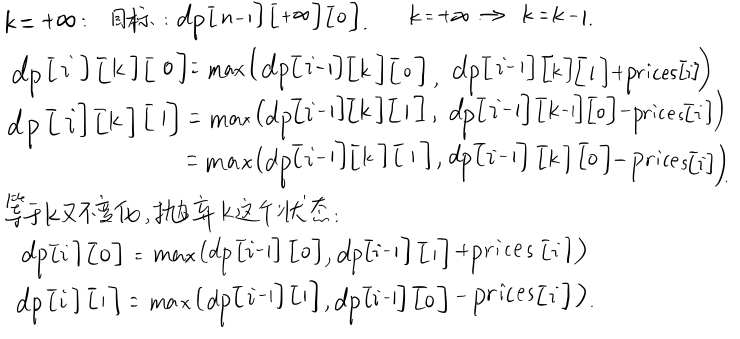 k=+∞: 目标: dp[n-1][+∞][0]. k=+∞ → k=k-1.
dp[i][k][0]=max(dp[i-1][k][0], dp[i-1][k][1]+prices[i])
dp[i][k][1]=max(dp[i-1][k][1], dp[i-1][k-1][0]-prices[i])
=max(dp[i-1][k][1], dp[i-1][k][0]-prices[i]).
等于k又不变化,抛弃k这个状态:
dp[i][0]=max(dp[i-1][0], dp[i-1][1]+prices[i])
dp[i][1]=max(dp[i-1][1], dp[i-1][0]-prices[i]).